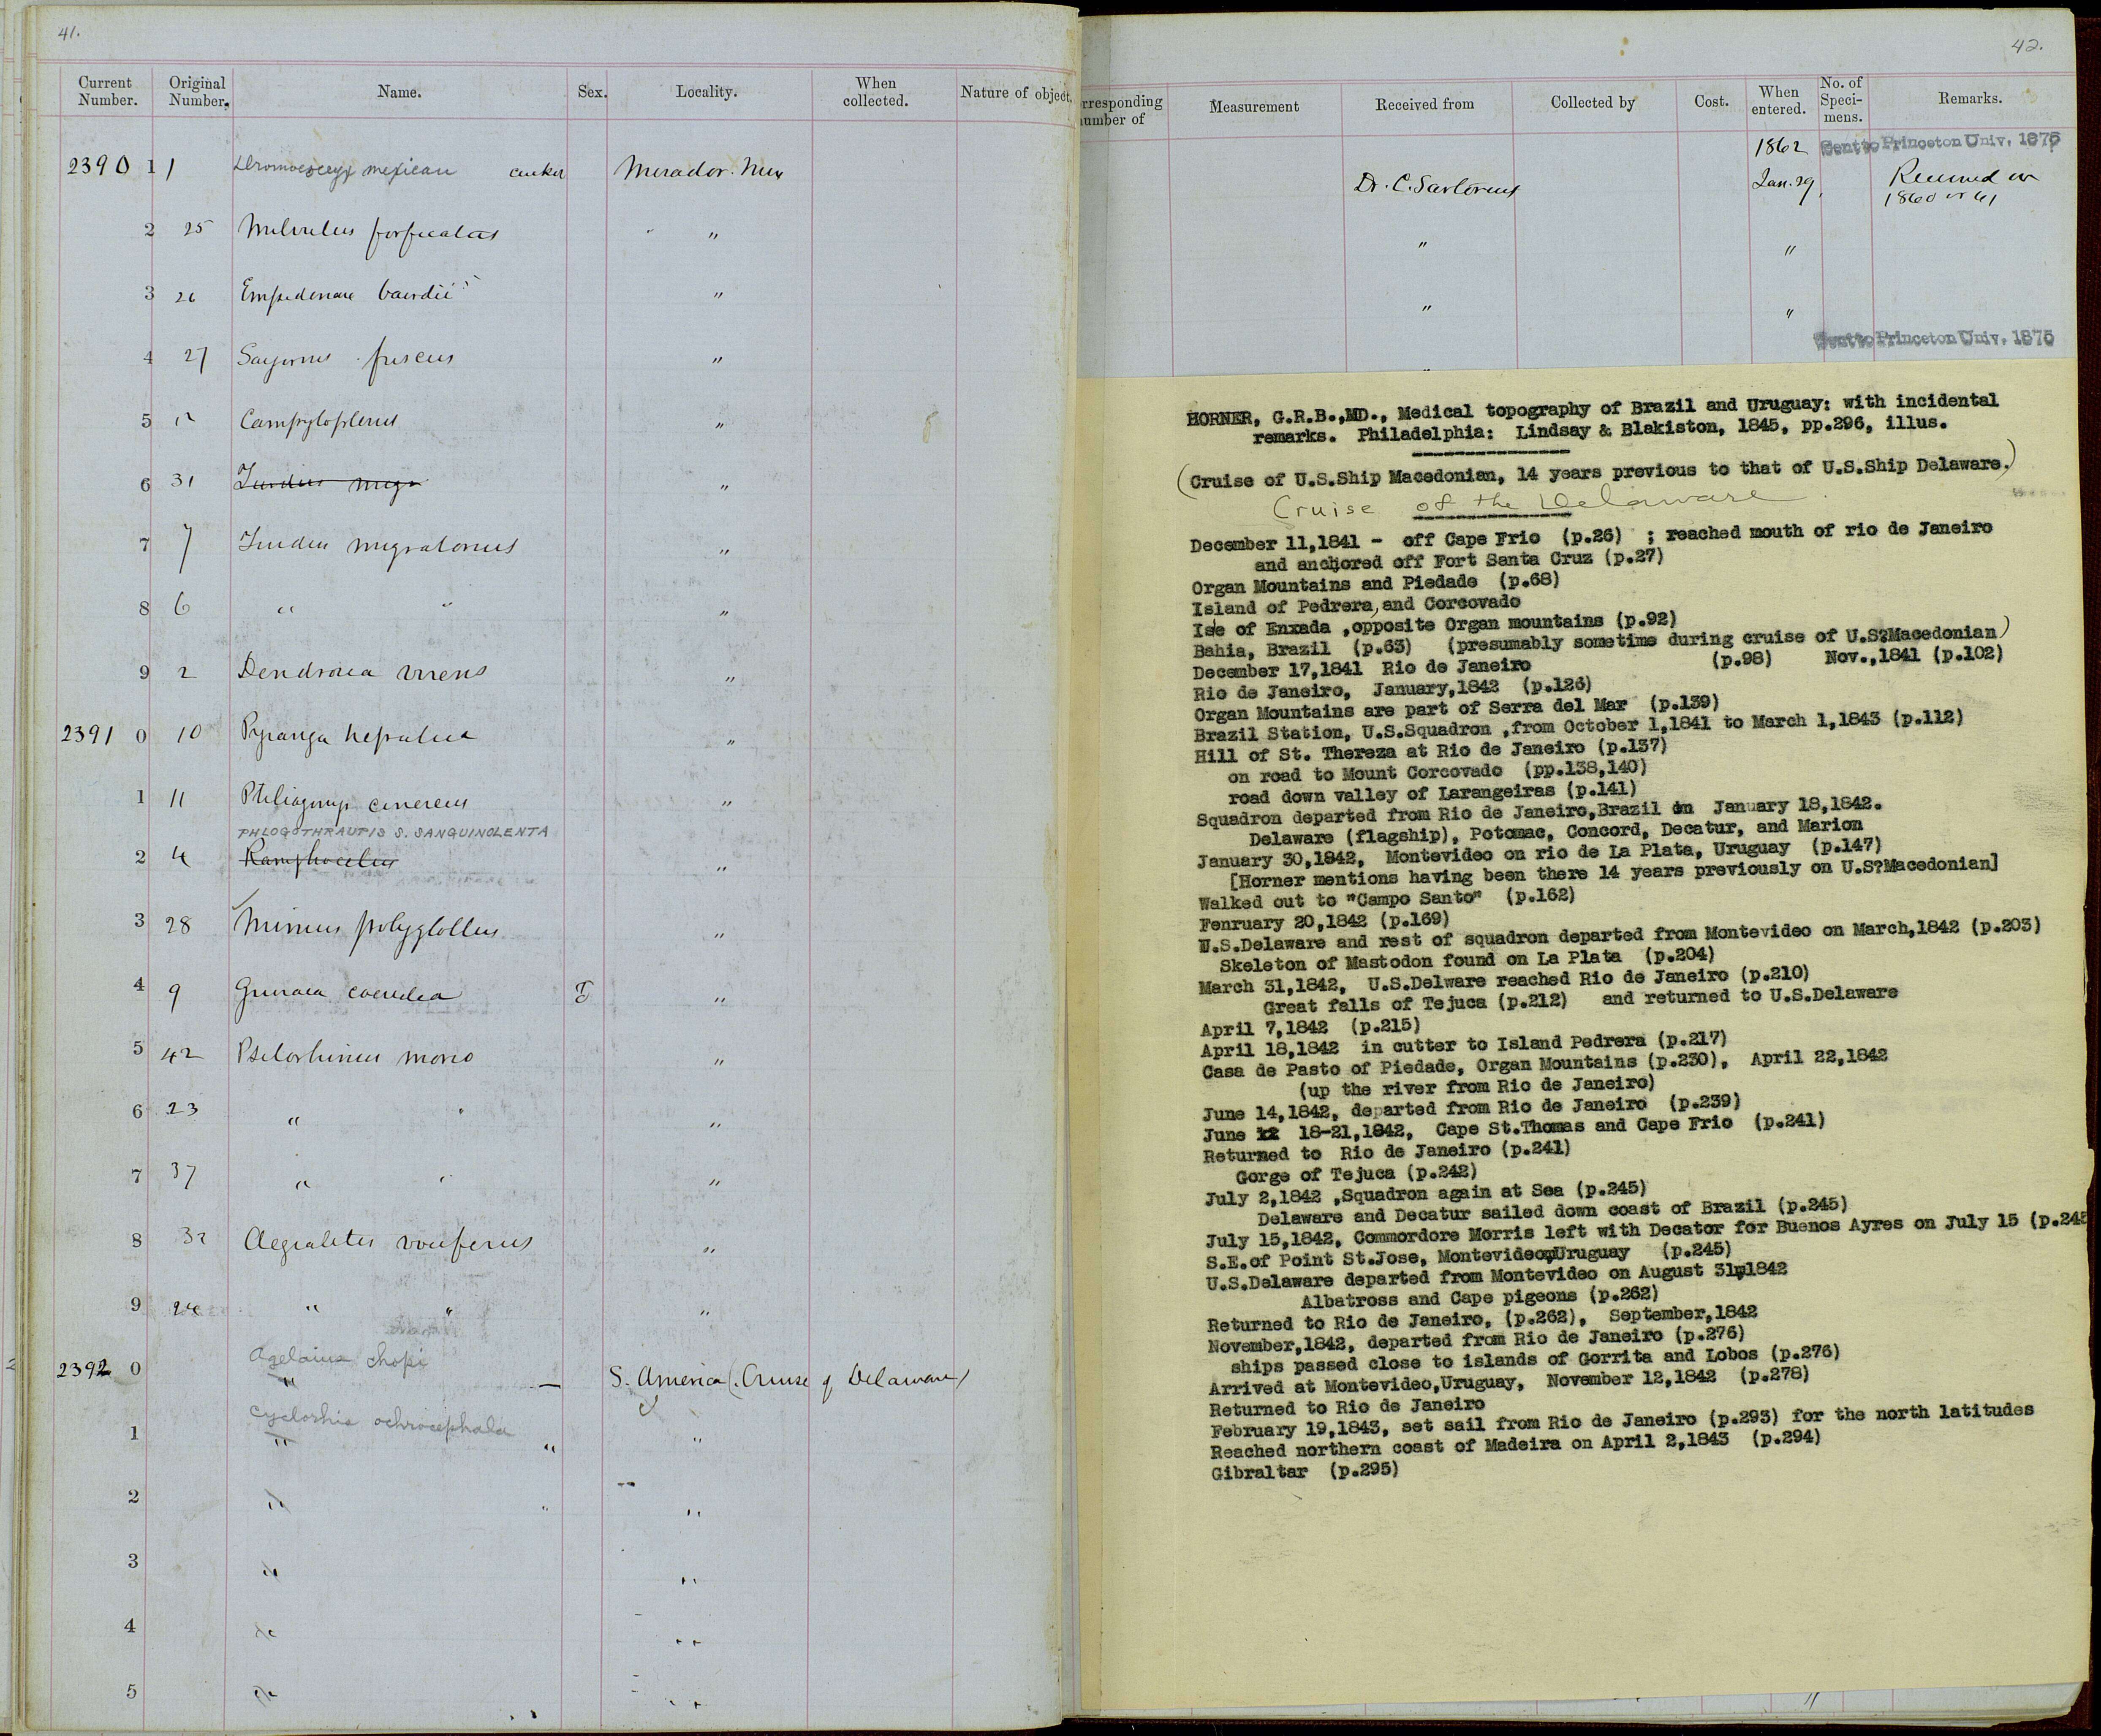 41.
Current Number. Original Number. Name. Sex. Locality. When collected. Nature of object.
2390 1 1 mexican Mirador. Mex
2 25 Milvulus forficatus " "
3 26 Empidonax bairdii "
4 27 Sayornis fuscus "
5 Campylopterus "
6 31 Turdus migr "
7 7 Turdus migratorius "
8 6 " " "
9 2 Dendroica virens "
2391 0 10 Pyranga hepatica "
1 11 Ptiliogonys cinereus "
PHLOGOTHRAUPIS S. SANGUINOLENTA
2 4 Ramphocelus "
3 28 Mimus polyglottus "
4 9 Guiraca coerulea "
5 42 Psilorhinus morio "
6 23 " " "
7 37 " " "
8 32 Aegialitis vociferus "
9 24 " " "
Agelaius chopi
2392 0 " — S. America (Cruise of Delaware)
Cyclorhis ochrocephala
1 " " "
2 " " "
3 " "
4 " "
5 " "
42.
orresponding number of Measurement Received from Collected by Cost. When entered. No. of Specimens. Remarks.
1862 Sent to Princeton Univ. 1875
Dr. C. Sartorius Jan. 29, Received in
1860 or 61
" "
" "
Sent to Princeton Univ. 1875
HORNER, G.R.B.,MD., Medical topography of Brazil and Uruguay: with incidental
remarks. Philadelphia: Lindsay & Blakiston, 1845, pp.296, illus.
(Cruise of U.S.Ship Macedonian, 14 years previous to that of U.S.Ship Delaware.)
Cruise of the Delaware.
December 11,1841 - off Cape Frio (p.26) ; reached mouth of rio de Janeiro
and anchored off Fort Santa Cruz (p.27)
Organ Mountains and Piedade (p.68)
Island of Pedrera, and Corcovado
Isle of Enxada ,opposite Organ mountains (p.92)
Bahia, Brazil (p.63) (presumably sometime during cruise of U.S?Macedonian)
December 17,1841 Rio de Janeiro (p.98) Nov.,1841 (p.102)
Rio de Janeiro, January,1842 (p.126)
Organ Mountains are part of Serra del Mar (p.139)
Brazil Station, U.S.Squadron ,from October 1,1841 to March 1,1843 (p.112)
Hill of St. Thereza at Rio de Janeiro (p.137)
on road to Mount Corcovado (pp.138,140)
road down valley of Larangeiras (p.141)
Squadron departed from Rio de Janeiro,Brazil on January 18,1842.
Delaware (flagship), Potomac, Concord, Decatur, and Marion
January 30,1842, Montevideo on rio de La Plata, Uruguay (p.147)
[Horner mentions having been there 14 years previously on U.S?Macedonian]
Walked out to "Campo Santo" (p.162)
Fenruary 20,1842 (p.169)
U.S.Delaware and rest of squadron departed from Montevideo on March,1842 (p.203)
Skeleton of Mastodon found on La Plata (p.204)
March 31,1842, U.S.Delware reached Rio de Janeiro (p.210)
Great falls of Tejuca (p.212) and returned to U.S.Delaware
April 7,1842 (p.215)
April 18,1842 in cutter to Island Pedrera (p.217)
Casa de Pasto of Piedade, Organ Mountains (p.230), April 22,1842
(up the river from Rio de Janeiro)
June 14,1842, departed from Rio de Janeiro (p.239)
June 18-21,1842, Cape St.Thomas and Cape Frio (p.241)
Returned to Rio de Janeiro (p.241)
Gorge of Tejuca (p.242)
July 2,1842 ,Squadron again at Sea (p.245)
Delaware and Decatur sailed down coast of Brazil (p.245)
July 15,1842, Commordore Morris left with Decator for Buenos Ayres on July 15 (p.245
S.E.of Point St.Jose, Montevideo,Uruguay (p.245)
U.S.Delaware departed from Montevideo on August 31,1842
Albatross and Cape pigeons (p.262)
Returned to Rio de Janeiro, (p.262), September,1842
November,1842, departed from Rio de Janeiro (p.276)
ships passed close to islands of Gorrita and Lobos (p.276)
Arrived at Montevideo,Uruguay, November 12,1842 (p.278)
Returned to Rio de Janeiro
February 19,1843, set sail from Rio de Janeiro (p.293) for the north latitudes
Reached northern coast of Madeira on April 2,1843 (p.294)
Gibraltar (p.295)